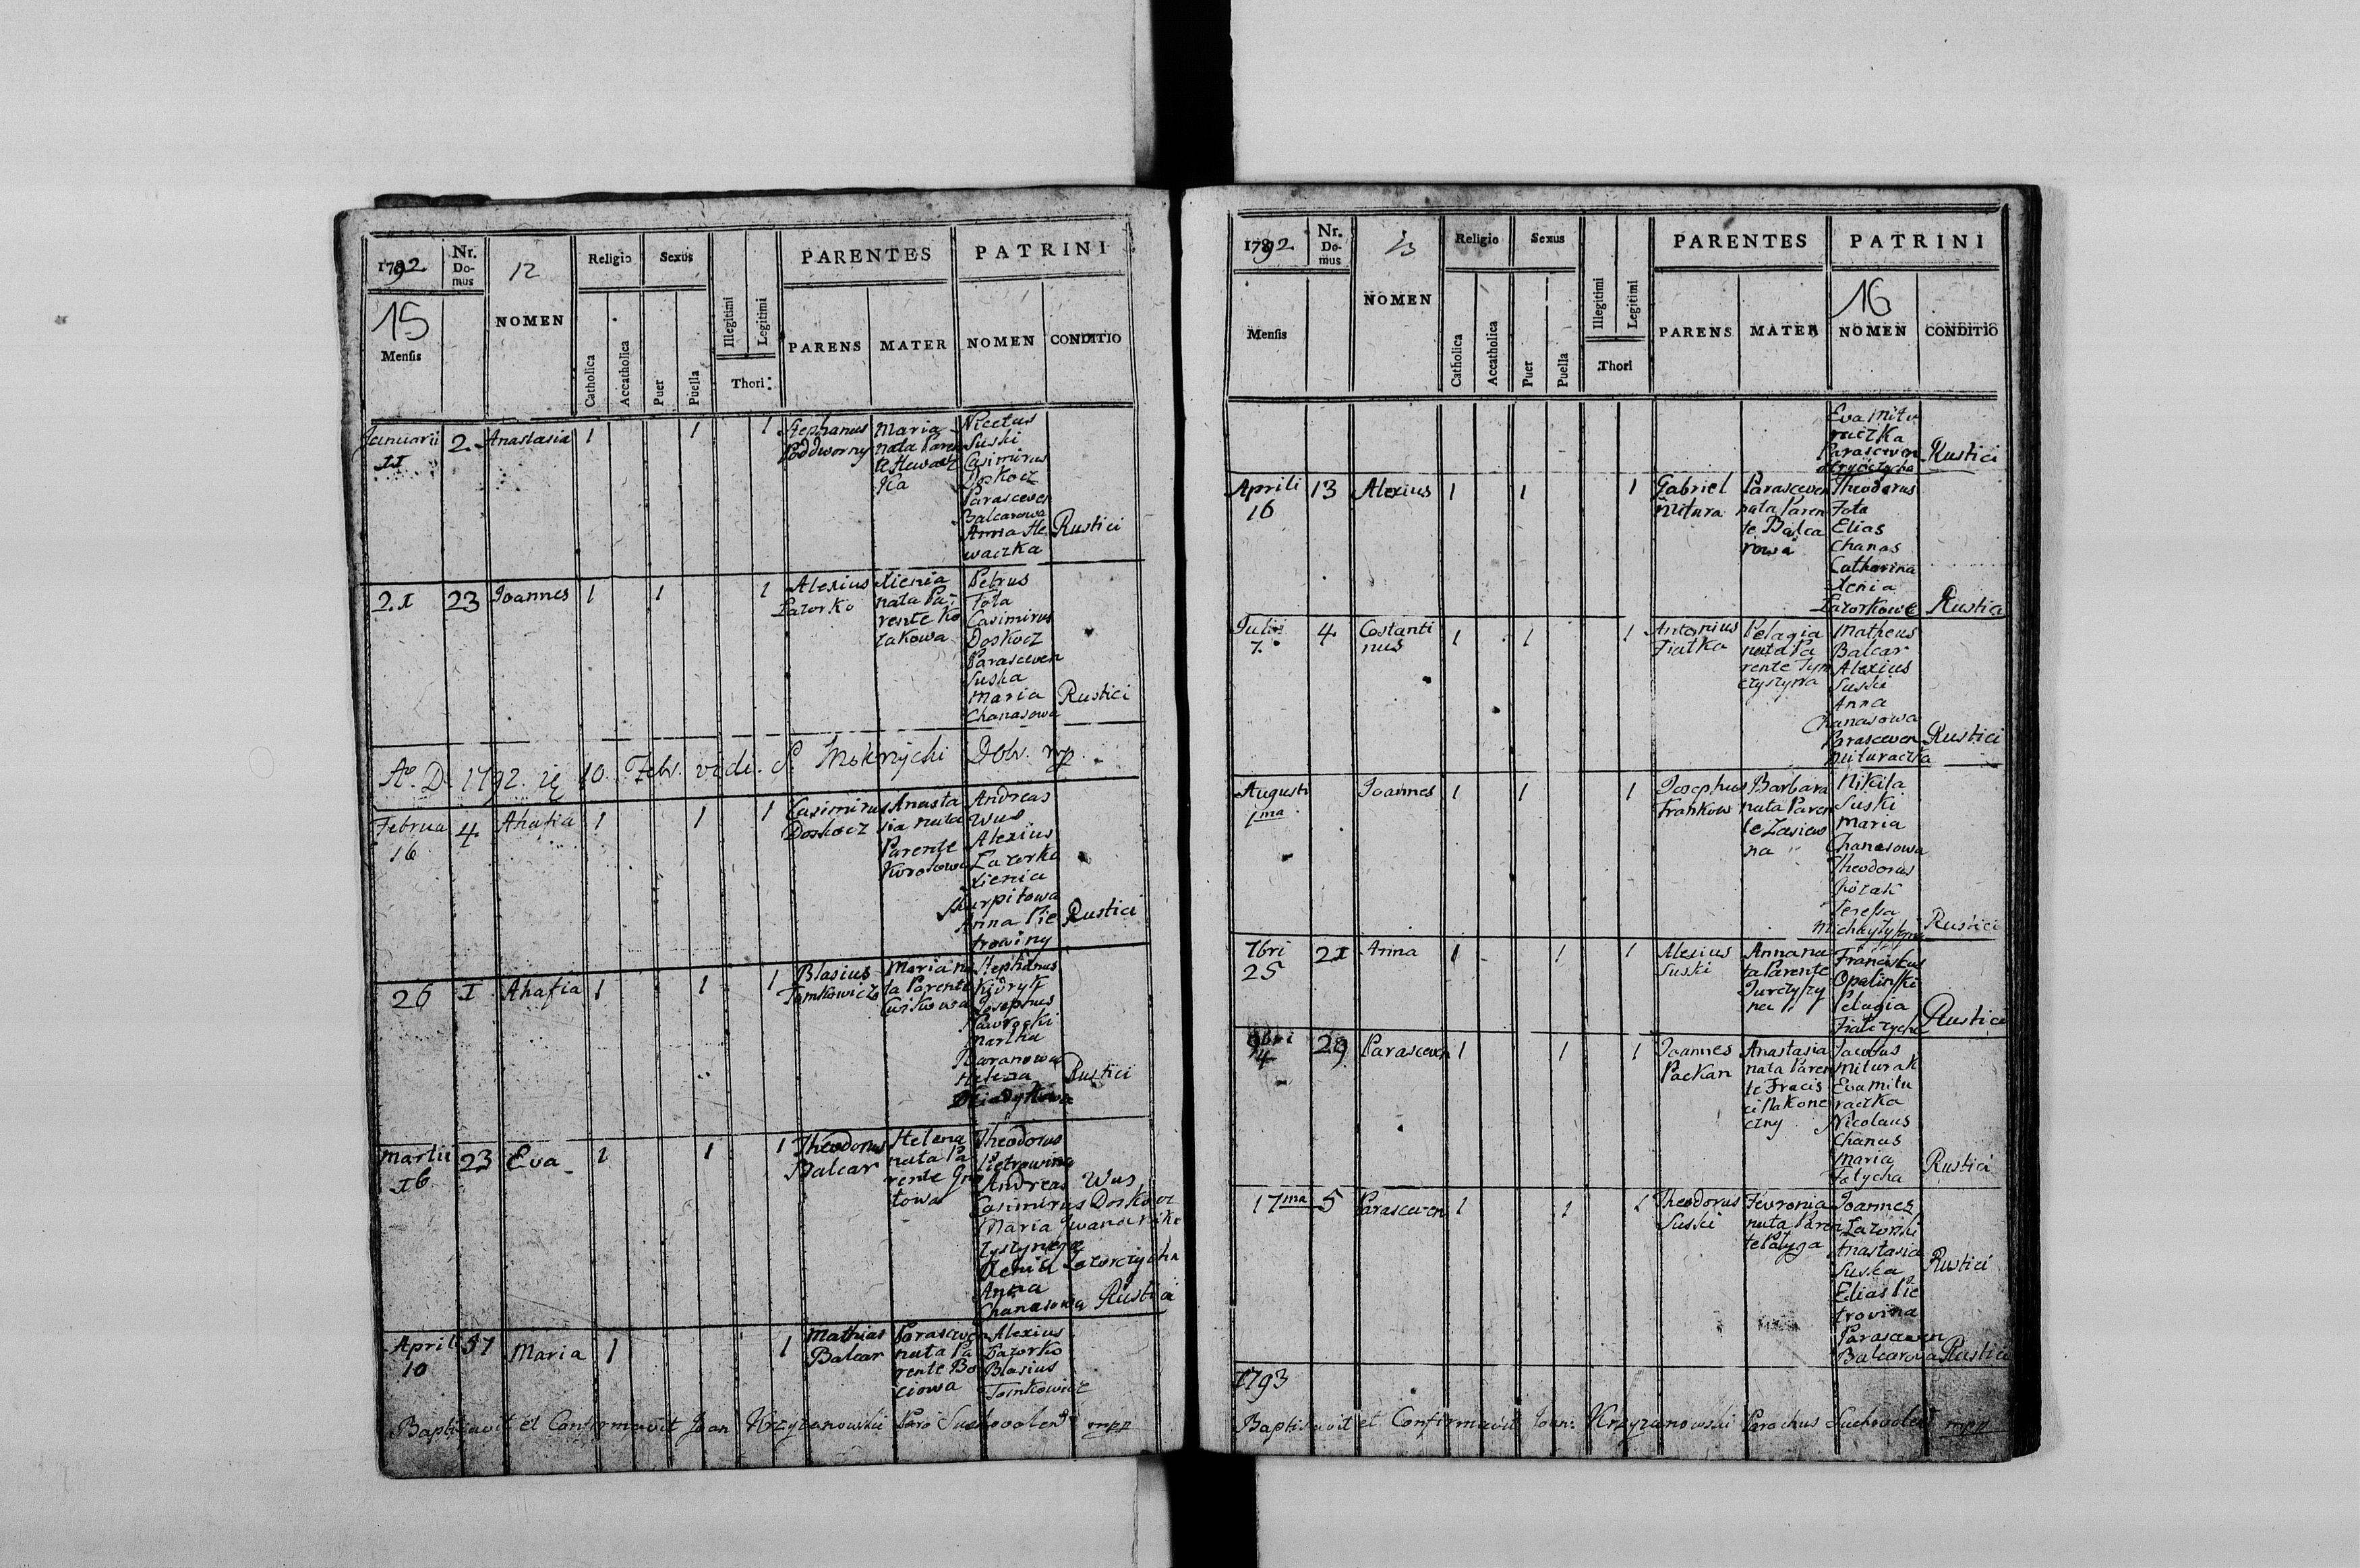 1792
Nr. Do- mus
12
Religio
Sexus
PARENTES
PATRINI
15
Mensis
NOMEN
Catholica
Accatholica
Puer
Puella
Illegitimi
Legitimi
Thori
PARENS
MATER
NOMEN
CONDITIO
Januarii 11
2
Anastasia
1
1
1
Stephanus
Poddworny
Maria
nata Paren
te Hewacz
ka
Nicetus
Suski
Casimirus
Doskocz
Parasceven
Balcarowa
Anna He
waczka
Rustici
21
23
Joannes
1
1
1
Alexius
Lazorko
Xienia
nata Pa-
rente Ko
zakowa
Petrus
Tota
Casimirus
Doskocz
Parasceven
Suska
Maria
Chanasowa
Rustici
Ao. D. 1792. 10. Febr. vidi.
Februa
16
4
Ahafia
1
1
1
Casimirus
Doskocz
Anasta
sia nata
Parente
Andreas
Wus
Alexius
Lazorko
Xienia
Anna Pie
trowiny
Rustici
26
1
Ahafia
1
1
1
Blasius
Tomkowicz
Maria na
ta Parente
Stephanus
Josephus
Nawrocki
Martha
Baranowa
Helena
Rustici
Martii
16
23
Eva
1
1
1
Theodorus
Balcar
Helena
nata Pa
rente Gna
towa
Theodorus
Pietrowina
Andreas Wus
Casimirus Doskocz
Maria
Xenia Lazorczycha
Anna
Chanasowa
Rustici
April
10
Maria
1
1
Mathias
Balcar
Parasceven
nata Pa
rente Bo
ciowa
Alexius
Lazorko
Blasius
Tomkowicz
Baptisavit et Confirmavit Joan Krzyzanowski Paro Suchovolens mpp
1792
Nr. Do- mus
13
Religio
Sexus
PARENTES
PATRINI
16
Mensis
NOMEN
Catholica
Accatholica
Puer
Puella
Illegitimi
Legitimi
Thori
PARENS
MATER
NOMEN
CONDITIO
Eva Mitu
raczka
Parasceven
Rustici
Aprili
16
13
Alexius
1
1
1
Gabriel
Mitura
Parasceven
nata Paren
te Balca
rowa
Theodorus
Tota
Elias
Chanas
Catharina
Xenia
Lazorkowe
Rustici
Julii
7
4
Costanti
nus
1
1
1
Antonius
Fiatka
Pelagia
nata Pa
rente Tym
czyszyna
Matheus
Balcar
Alexius
Suski
Anna
Chanasowa
Parasceven
Mituraczka
Rustici
Augusti
1ma
Joannes
1
1
1
Josephus
Frankow
Barbara
nata Paren
te
Nikita
Suski
Maria
Chanasowa
Theodorus
Kozak
Teressa
Rustici
7bri
25
21
Anna
1
1
1
Alexius
Suski
Anna na
ta Parente
Jurczyszy
na
Franciscus
Opalinski
Pelagia
Rustici
9bri
4
29
Parasceven
1
1
1
Joannes
Packan
Anastasia
nata Paren
te
Jacobus
Miturak
Eva Mitu
raczka
Nicolaus
Chanas
Maria
Totycha
Rustici
17ma
5
Parasceven
1
1
1
Theodorus
Suski
Fevronia
nata Paren
te
Joannes
Lazorski
Anastasia
Suska
Elias Pie
trovina
Parasceven
Balcarova
Rustici
Rustici
1793
Baptisavit et Confirmavit Joan: Krzyzanowski Parochus Suchovolens mpp